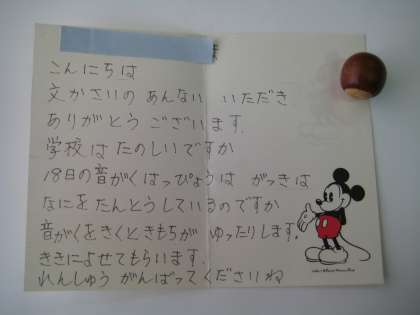 こんにちは
文かさいの あんない いただき
ありがとう ございます.
学校は たのしいですか
18日の音がくはっぴょうは がっきは
なにを たんとうしているのですか
音がくをきくときもちが ゆったりします.
ききによせてもらいます.
れんしゅう がんばってくださいね